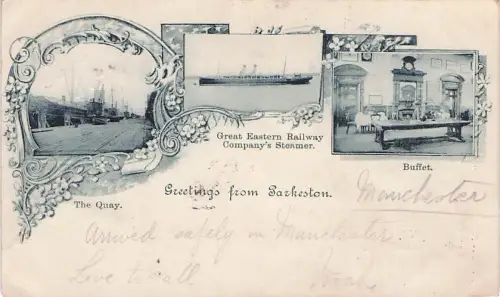 Great Eastern Railway
Company's Steamer.
Buffet.
The Quay.
Greetings from Parkeston.
Manchester
Arrived safely in Manchester
Love to all